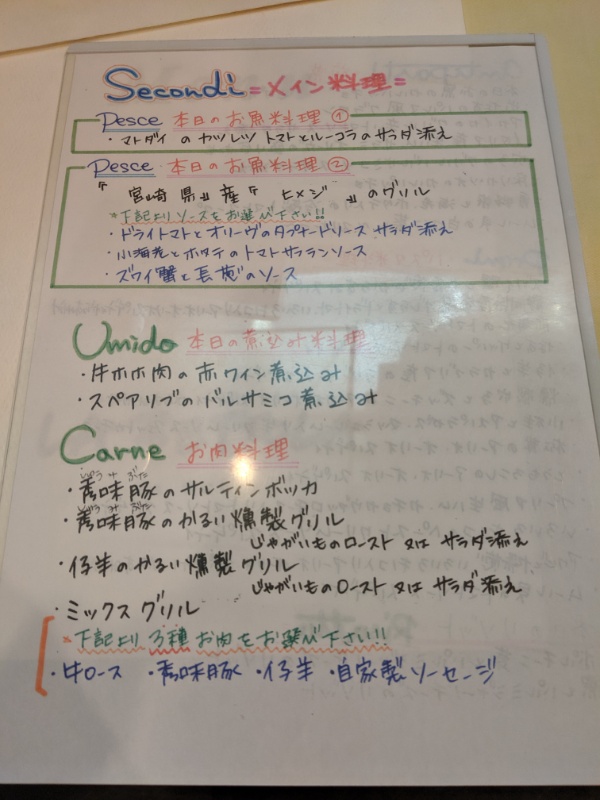 Secondi =メイン料理=
Pesce 本日のお魚料理①
・マトダイ の カツレツ トマトとルーコラのサラダ添え
Pesce 本日のお魚料理②
『 宮崎県 』産『 ヒメジ 』のグリル
*下記よりソースをお選び下さい!!
・ドライトマトとオリーヴのタプナードソース サラダ添え
・小海老とホタテのトマトサフランソース
・ズワイ蟹と長葱のソース
Umido 本日の煮込み料理
・牛ホホ肉の赤ワイン煮込み
・スペアリブのバルサミコ煮込み
Carne お肉料理
・味豚のサルティンボッカ
・味豚のかるい燻製グリル
じゃがいものロースト 又は サラダ添え
・仔羊のかるい燻製グリル
じゃがいものロースト 又は サラダ添え
・ミックスグリル
*下記より3種お肉をお選び下さい!!
・牛ロース ・味豚 ・仔羊 ・自家製ソーセージ